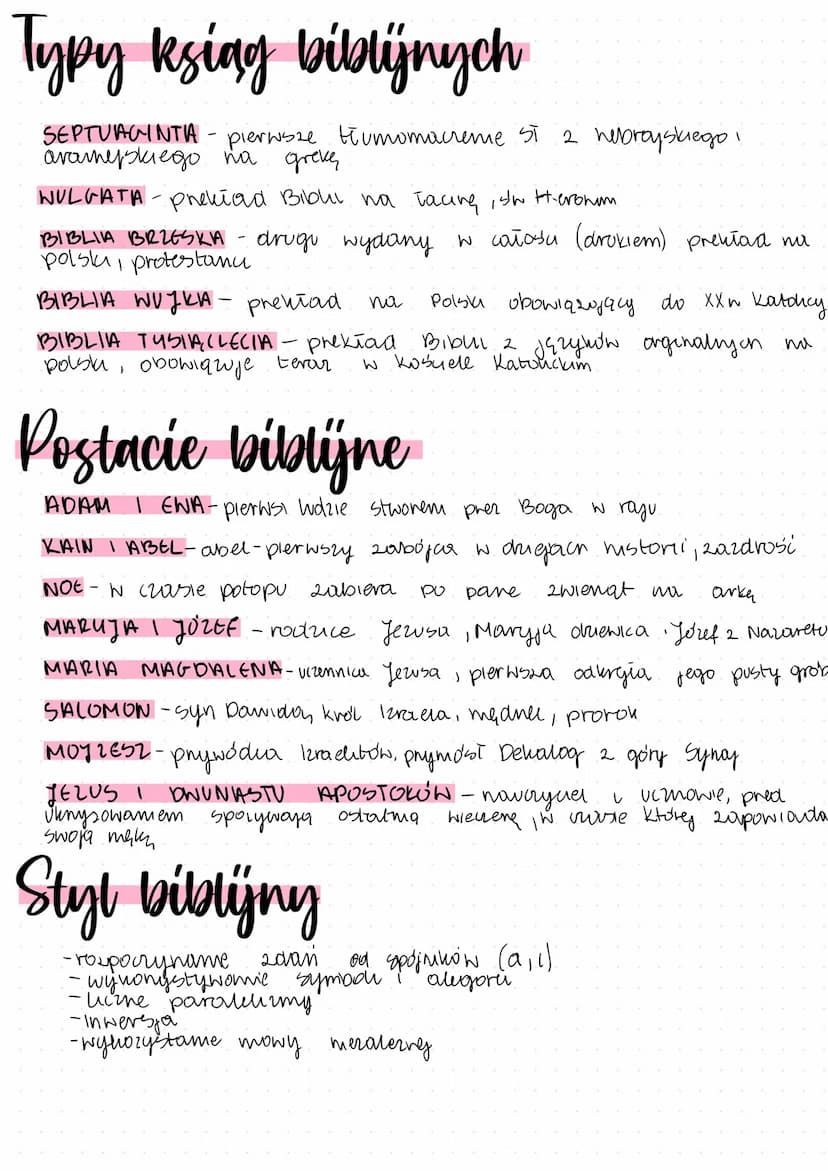 Typy ksiąg biblijnych
SEPTUAGINTA - pierwsze tłumomaczenie ST z hebrajskiego i
aramejskiego na grekę
WULGATA - przekład Biblii na łacinę, św Hieronim
BIBLIA BRZESKA - drugi wydany w całości (drukiem) przekład na
polski, protestanci
BIBLIA WUJKA - przekład na Polski obowiązujący do XXw Katolicy
BIBLIA TYSIĄCLECIA - przekład Biblii z języków orginalnych na
polski, obowiązuje teraz w Kościele Katolickim
Postacie biblijne
ADAM I EWA - pierwsi ludzie stworzeni przez Boga w raju
KAIN I ABEL - abel - pierwszy zabójca w dziejach historii, zazdrość
NOE - w czasie potopu zabiera po parze zwierząt na arkę
MARYJA I JÓZEF - rodzice Jezusa, Maryja dziewica i Józef z Nazaretu
MARIA MAGDALENA - uczennica Jezusa, pierwsza odkryła jego pusty grób
SALOMON - syn Dawida, król Izraela, mędrzec, prorok
MOJŻESZ - przywódca Izraelitów, przyniósł Dekalog z góry Synaj
JEZUS I DWUNASTU APOSTOŁÓW - nauczyciel i uczniowie, przed
ukrzyżowaniem spożywają ostatnią wieczerzę, w czasie której zapowiada
swoją mękę
Styl biblijny
- rozpoczynanie zdań od spójników (a, i)
- wykorzystywanie symboli i alegorii
- liczne paralelizmy
- inwersja
- wykorzystanie mowy niezależnej